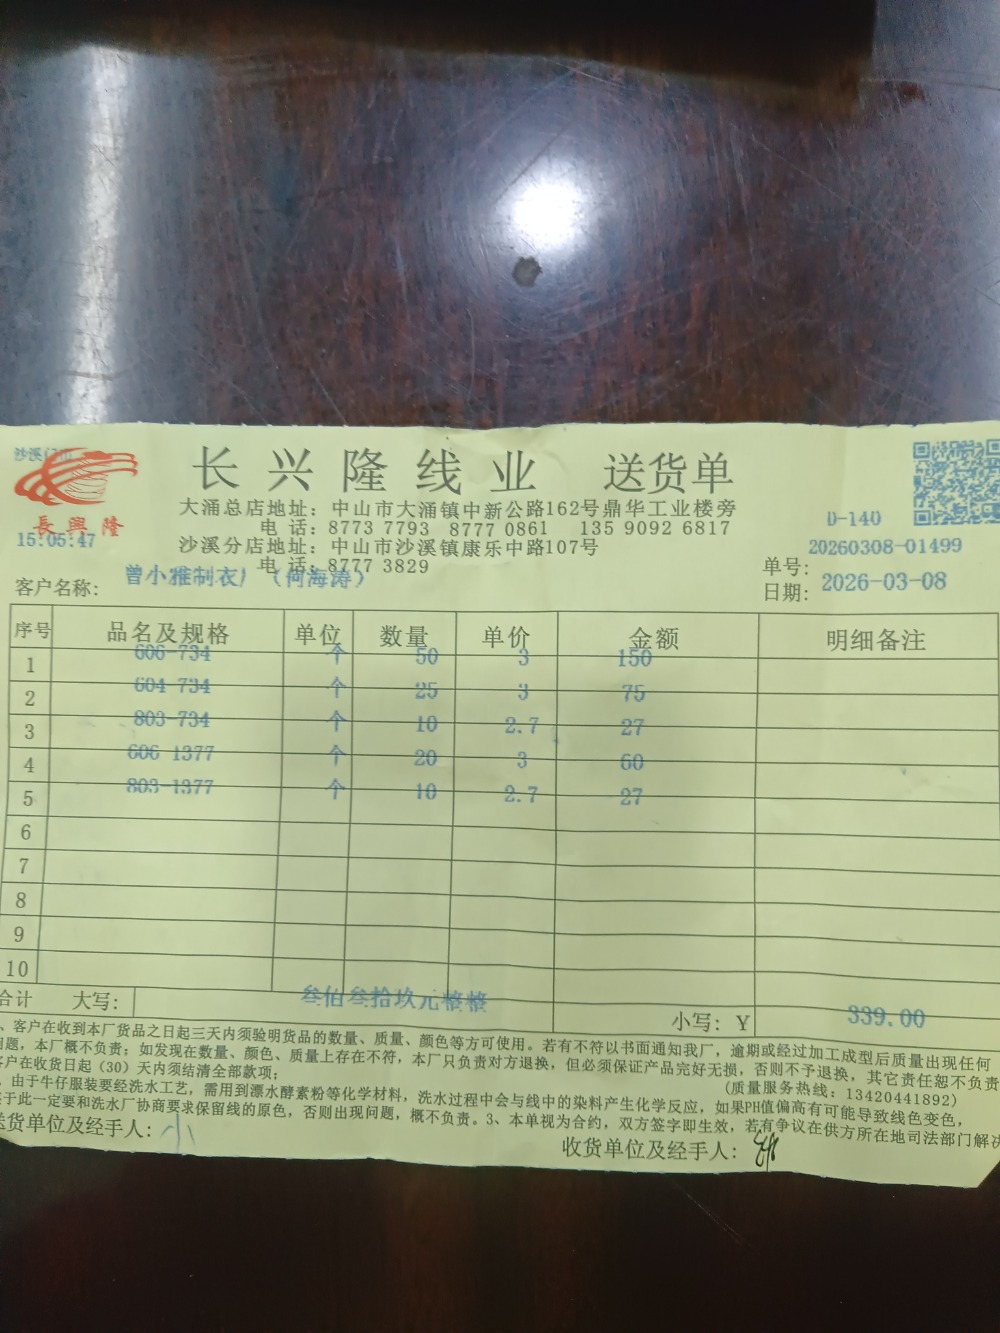 長興隆
15:05:47
长兴隆线业 送货单
大涌总店地址：中山市大涌镇中新公路162号鼎华工业楼旁
电 话：8773 7793 8777 0861 135 9092 6817
沙溪分店地址：中山市沙溪镇康乐中路107号
电 话：8777 3829
D-140
单号：20260308-01499
日期：2026-03-08
客户名称：曾小雅制衣厂（何海涛）
序号 品名及规格 单位 数量 单价 金额 明细备注
1 606-734 个 50 3 150
2 604-734 个 25 3 75
3 803-734 个 10 2.7 27
4 606-1377 个 20 3 60
5 803-1377 个 10 2.7 27
6
7
8
9
10
合计 大写：叁佰叁拾玖元整整
小写：Y 339.00
、客户在收到本厂货品之日起三天内须验明货品的数量、质量、颜色等方可使用。若有不符以书面通知我厂，逾期或经过加工成型后质量出现任何
问题，本厂概不负责；如发现在数量、颜色、质量上存在不符，本厂只负责对方退换，但必须保证产品完好无损，否则不予退换，其它责任恕不负责
客户在收货日起（30）天内须结清全部款项；
(质量服务热线：13420441892)
，由于牛仔服装要经洗水工艺，需用到漂水酵素粉等化学材料，洗水过程中会与线中的染料产生化学反应，如果PH值偏高有可能导致线色变色，
于此一定要和洗水厂协商要求保留线的原色，否则出现问题，概不负责。3、本单视为合约，双方签字即生效，若有争议在供方所在地司法部门解决
送货单位及经手人：小
收货单位及经手人：